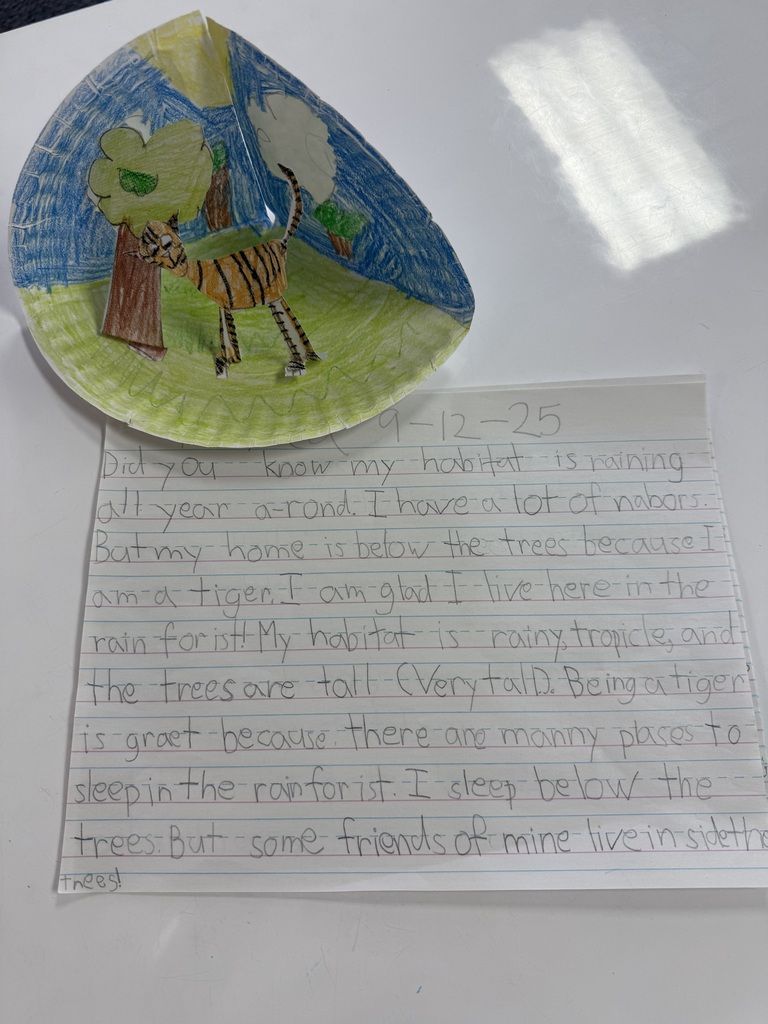 9-12-25
Did you know my habitat is raining
all year a-rond. I have a lot of nabors.
But my home is below the trees because I
am a tiger. I am glad I live here in the
rain forist! My habitat is rainy, tropicle, and
the trees are tall (Very tall). Being a tiger
is graet because there are manny places to
sleep in the rain forist. I sleep below the
trees. But some friends of mine live in side the
trees!